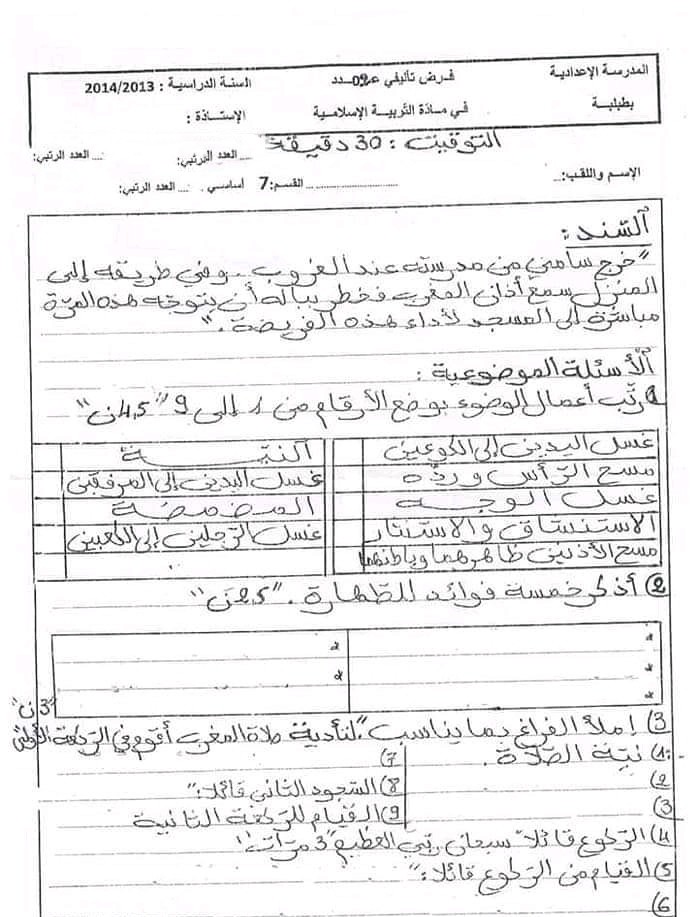 المدرسة الإعدادية فرض تأليفي عـ02ـدد السنة الدراسية : 2014/2013
بطبلبة في مادة التربية الإسلامية الاستاذة :
التوقيت : 30 دقيقة
الإسم واللقب:... القسم:7 أساسي .... العدد الرتبي:
.... العدد الرتبي: .... العدد الرتبي:
السند :
"خرج سامي من مدرسته عند الغروب .. وفي طريقه إلى
المنزل سمع أذان المغرب فخطر بباله أن يتوجه هذه المرّة
مباشرة إلى المسجد لأداء هذه الفريضة."
الأسئلة الموضوعية :
1 رتّب أعمال الوضوء بوضع الأرقام من 1 إلى 9 "4,5ن"
غسل اليدين إلى الكوعين النيّة
مسح الرّأس وردّه غسل اليدين إلى المرفقين
غسل الوجه المضمضة
الاستنشاق والاستنثار غسل الرّجلين إلى الكعبين
مسح الأذنين ظاهرهما وباطنهما
2) أذكر خمسة فوائد للطّهارة . "2,5ن"
3) إملأ الفراغ بما يناسب :"لتأدية صلاة المغرب أقوم في الرّكعة الأولى "3ن"
1: نيّة الصّلاة .
2)
3)
4) الرّكوع قائلا "سبحان ربّي العظيم" 3 مرّات"
5) القيام من الرّكوع قائلا:"
6)
7)
8) السّجود الثاني قائلا:"
9) القيام للرّكعة الثانية